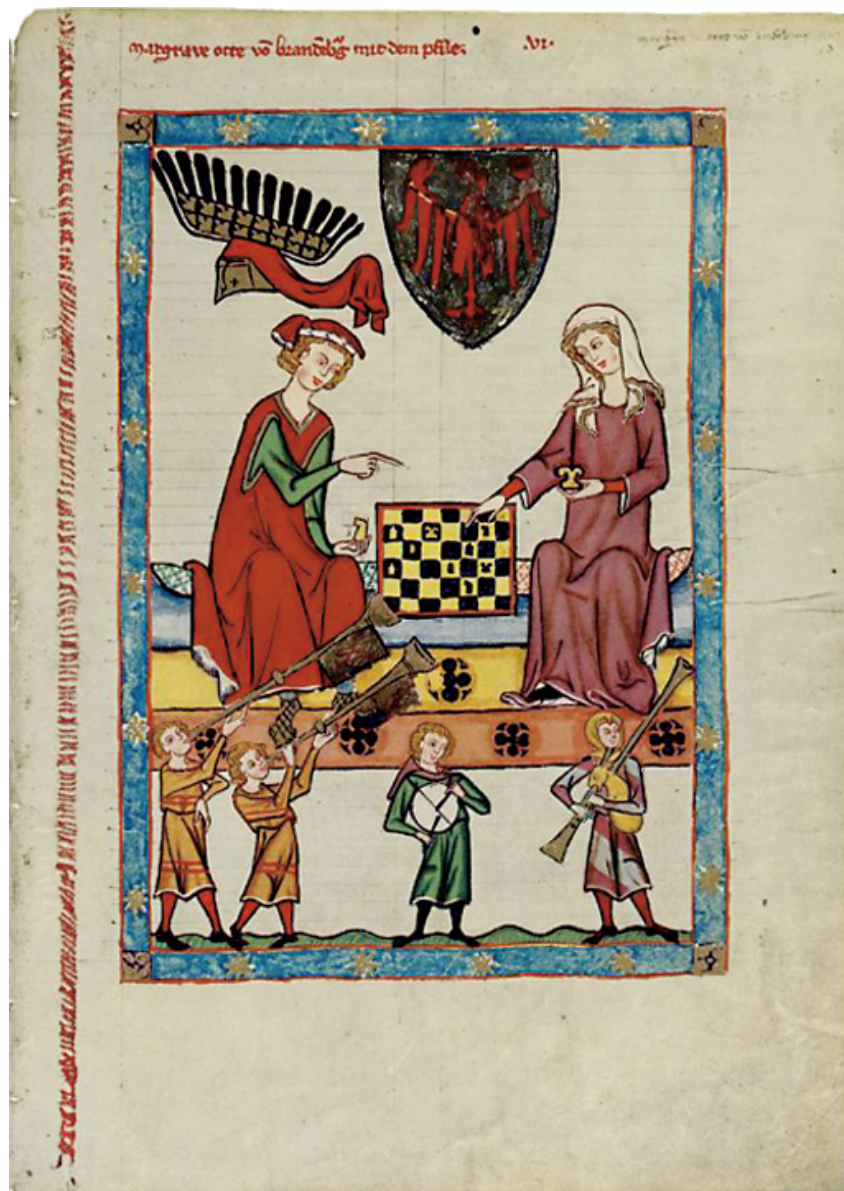 Margrave otte vō brandēbg mit dem pfile. .VI.